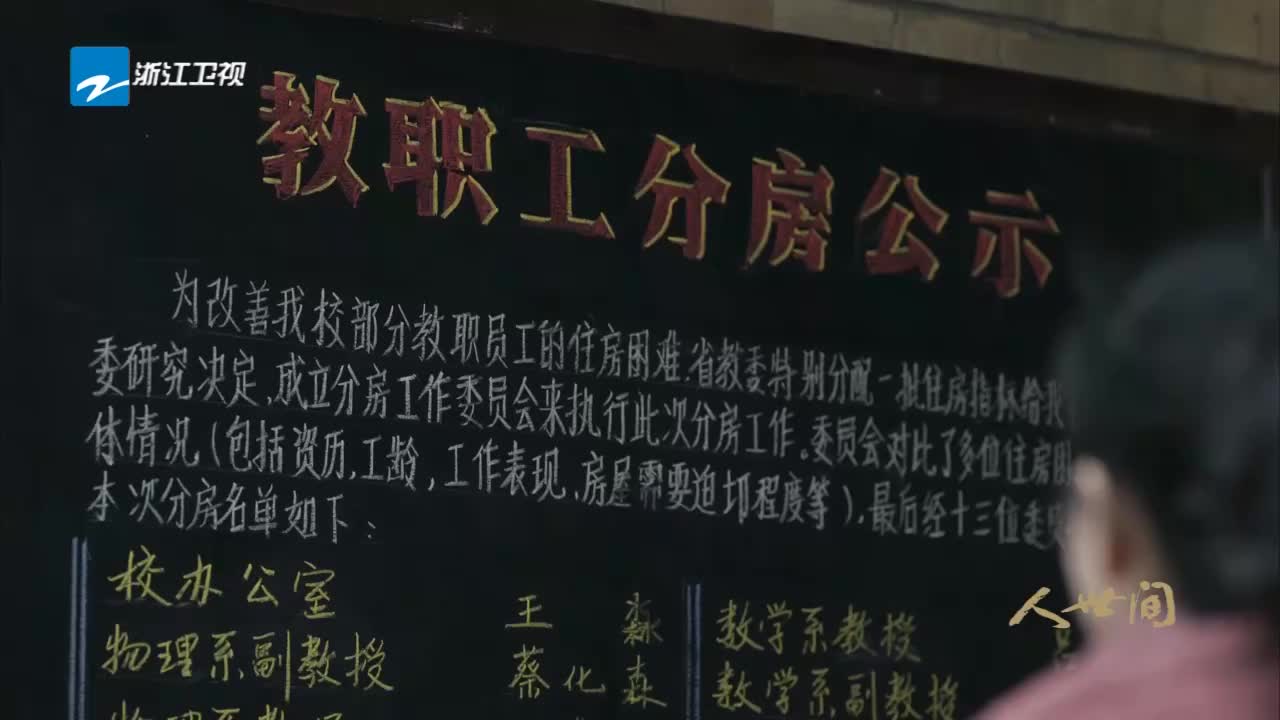 浙江卫视
教职工分房公示
为改善我校部分教职员工的住房困难,省教委特别分配一批住房指标给我
委研究决定,成立分房工作委员会来执行此次分房工作。委员会对比了多位住房困
体情况(包括资历,工龄,工作表现,房屋需要迫切程度等),最后经十三位委
本次分房名单如下:
校办公室 王淼 数学系教授
物理系副教授 蔡化森 数学系副教授
人世间